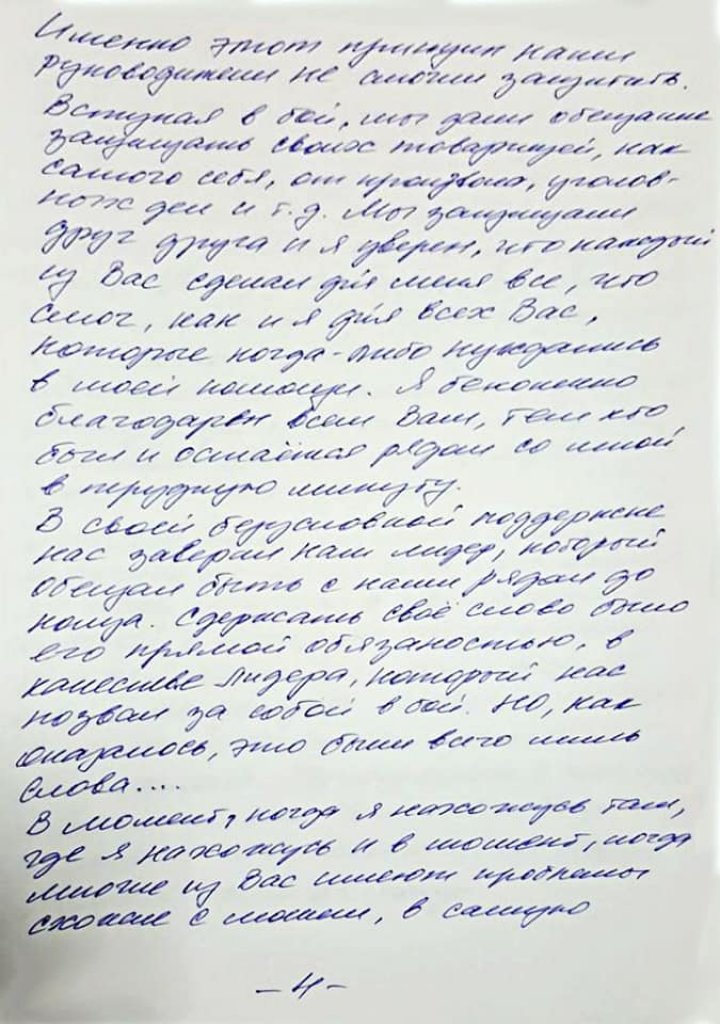 Именно этот принцип наши
руководители не смогли защитить.
Вступая в бой, мы дали обещание
защищать своих товарищей, как
самого себя, от произвола, уголов-
ных дел и т.д. Мы защищали
друг друга и я уверен, что каждый
из Вас сделал для меня все, что
смог, как и я для всех Вас,
которые когда-либо нуждались
в моей помощи. Я бесконечно
благодарен всем Вам, тем кто
был и остаётся рядом со мной
в трудную минуту.
В своей безусловной поддержке
нас заверил наш лидер, который
обещал быть с нами рядом до
конца. Сдержать своё слово было
его прямой обязаностью, в
качестве лидера, который нас
позвал за собой в бой. Но, как
оказалось, это были всего лишь
слова....
В момент, когда я нахожусь там,
где я нахожусь и в момент, когда
многие из Вас имеют проблемы
схожие с моими, в самую
-4-